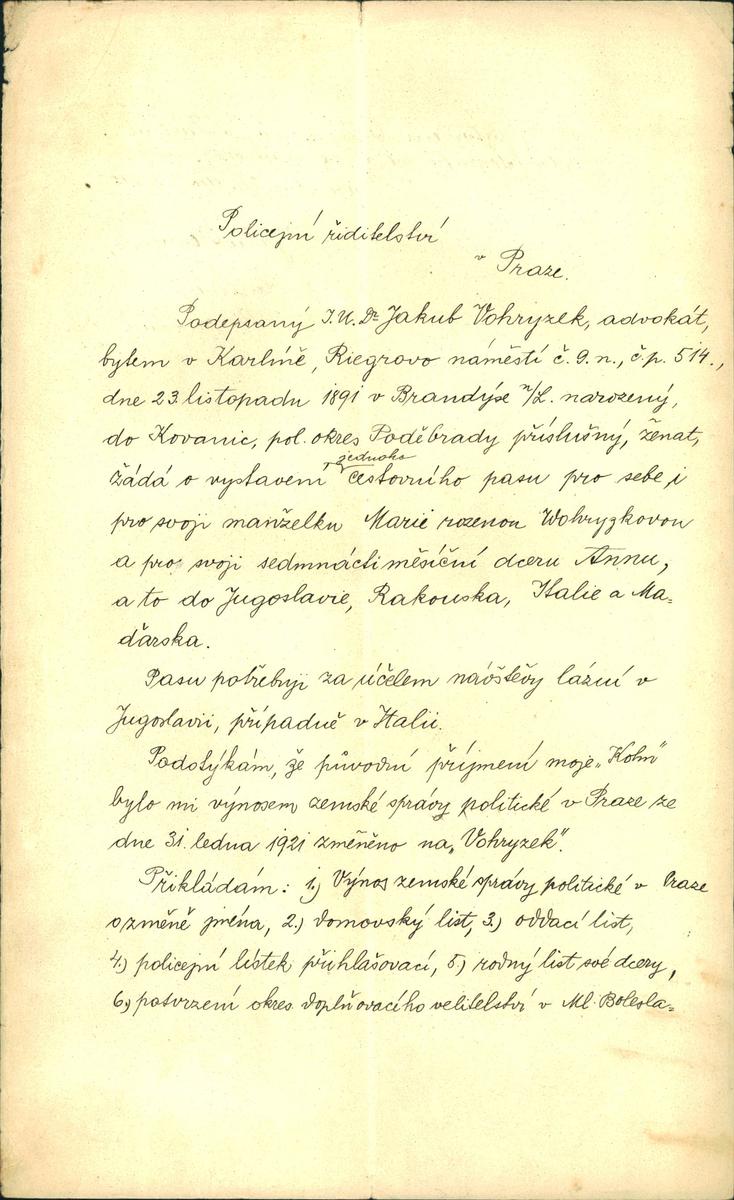 Policejní řiditelství
v Praze.
Podepsaný J.U.Dr Jakub Vohryzek, advokát,
bytem v Karlíně, Riegrovo náměstí č. 9. n., č.p. 514.,
dne 23. listopadu 1891 v Brandýse n/L. narozený,
do Kovanic, pol. okres Poděbrady příslušný, ženat,
jednoho
žádá o vystavení cestovního pasu pro sebe i
pro svoji manželku Marii rozenou Wohryzkovou
a pro svoji sedmnáctiměsíční dceru Annu,
a to do Jugoslavie, Rakouska, Italie a Ma=
ďarska.
Pasu potřebuji za účelem návštěvy lázní v
Jugoslavii, případně v Italii.
Podotýkám, že původní příjmení moje „Kohn"
bylo mi výnosem zemské správy politické v Praze ze
dne 31. ledna 1921 změněno na „Vohryzek".
Přikládám: 1.) Výnos zemské správy politické v Praze
o změně jména, 2.) domovský list, 3.) oddací list,
4.) policejní lístek přihlašovací, 5.) rodný list své dcery,
6.) potvrzení okres. doplňovacího velitelství v Ml. Bolesla=